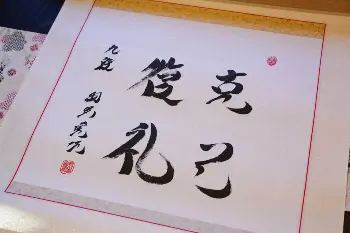 克己
復礼
九段